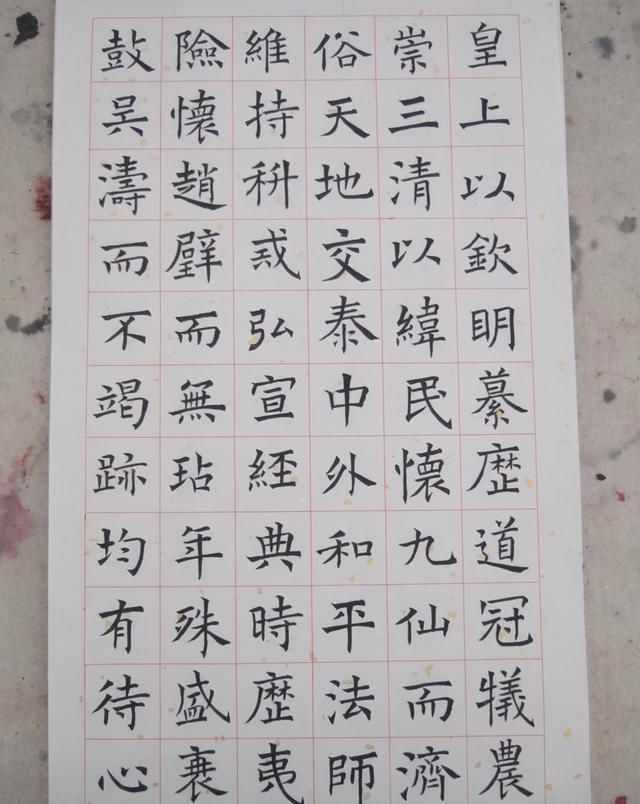 皇上以欽明纂歷道冠犧農
崇三清以緯民懷九仙而濟
俗天地交泰中外和平法師
維持科戒弘宣經典時歷夷
險懷趙璧而無玷年殊盛衰
鼓吴濤而不竭跡均有待心